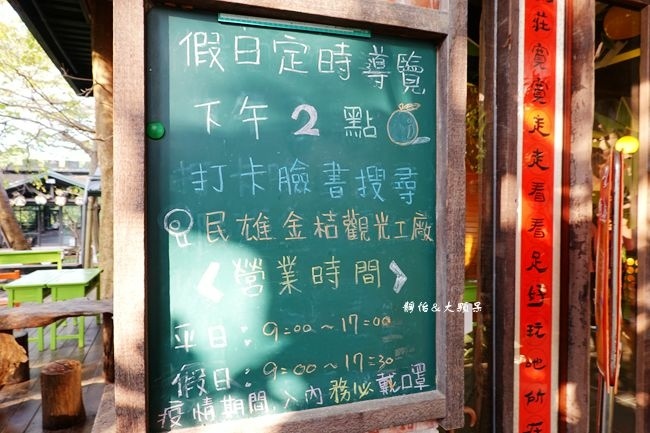 假日定時導覽
下午2點
打卡臉書搜尋
民雄金桔觀光工廠
<營業時間>
平日：9=00~17=00
假日：9=00~17=30
疫情期間，入內務必戴口罩
靜怡&大顆呆
莊寬寬走走看看足好玩地所在